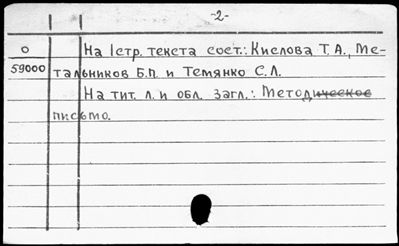 -2-
0 На 1стр. текста сост.: Кислова Т.А., Ме-
59000 тальников Б.П. и Темянко С.Л.
На тит. л. и обл. загл.: Методическое
письмо.